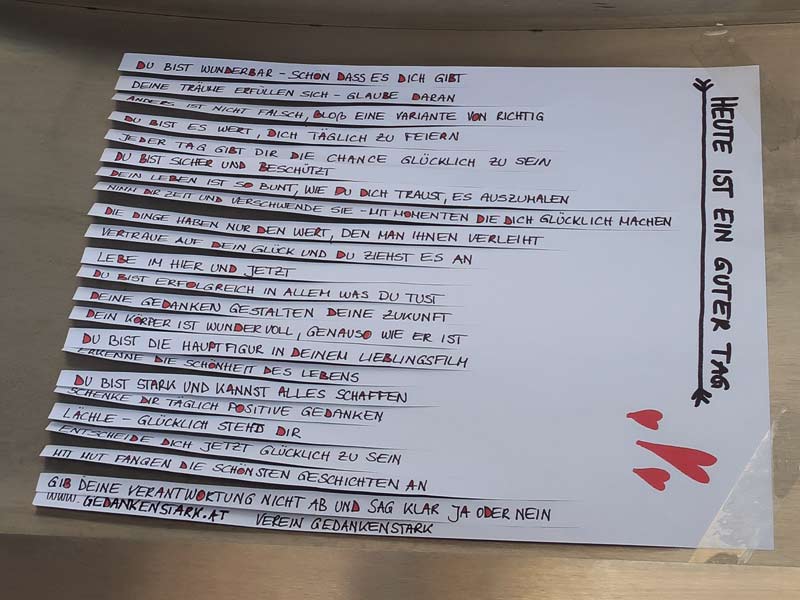 DU BIST WUNDERBAR – SCHÖN DASS ES DICH GIBT
DEINE TRÄUME ERFÜLLEN SICH – GLAUBE DARAN
ANDERS IST NICHT FALSCH, BLOẞ EINE VARIANTE VON RICHTIG
DU BIST ES WERT, DICH TÄGLICH ZU FEIERN
JEDER TAG GIBT DIR DIE CHANCE GLÜCKLICH ZU SEIN
DU BIST SICHER UND BESCHÜTZT
DEIN LEBEN IST SO BUNT, WIE DU DICH TRAUST, ES AUSZUMALEN
NIMM DIR ZEIT UND VERSCHWENDE SIE – MIT MOMENTEN DIE DICH GLÜCKLICH MACHEN
DIE DINGE HABEN NUR DEN WERT, DEN MAN IHNEN VERLEIHT
VERTRAUE AUF DEIN GLÜCK UND DU ZIEHST ES AN
LEBE IM HIER UND JETZT
DU BIST ERFOLGREICH IN ALLEM WAS DU TUST
DEINE GEDANKEN GESTALTEN DEINE ZUKUNFT
DEIN KÖRPER IST WUNDERVOLL, GENAUSO WIE ER IST
DU BIST DIE HAUPTFIGUR IN DEINEM LIEBLINGSFILM
ERKENNE DIE SCHÖNHEIT DES LEBENS
DU BIST STARK UND KANNST ALLES SCHAFFEN
SCHENKE DIR TÄGLICH POSITIVE GEDANKEN
LÄCHLE – GLÜCKLICH STEHT DIR
ENTSCHEIDE DICH JETZT GLÜCKLICH ZU SEIN
MIT MUT FANGEN DIE SCHÖNSTEN GESCHICHTEN AN
GIB DEINE VERANTWORTUNG NICHT AB UND SAG KLAR JA ODER NEIN
WWW.GEDANKENSTARK.AT VEREIN GEDANKENSTARK
HEUTE IST EIN GUTER TAG